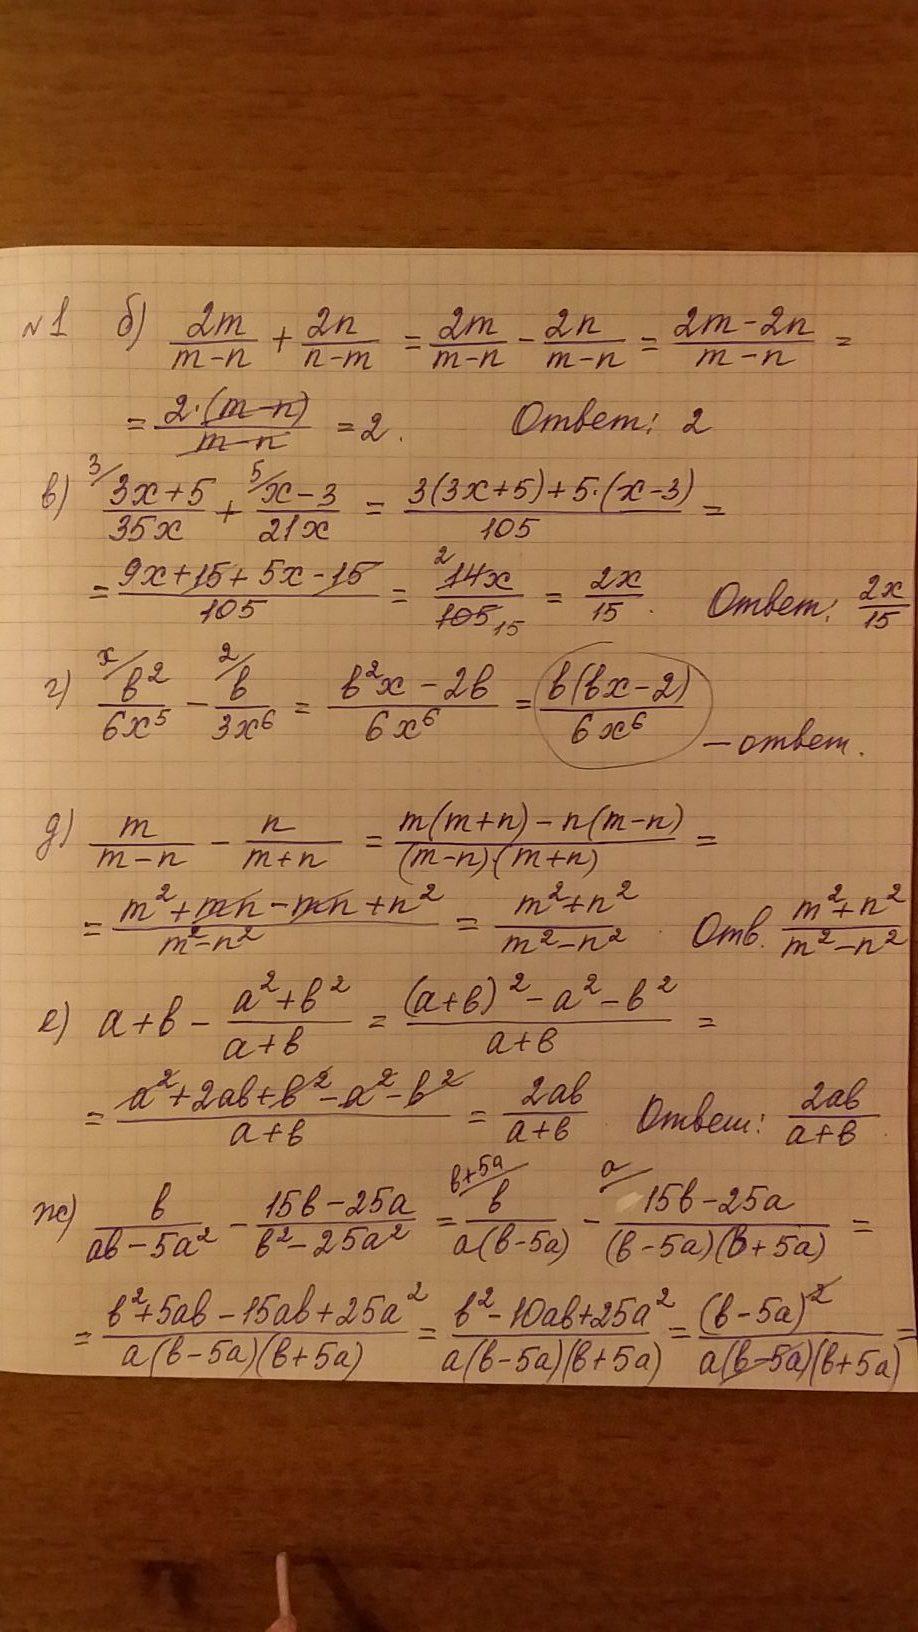 №1 б) 2m/(m-n) + 2n/(n-m) = 2m/(m-n) - 2n/(m-n) = (2m-2n)/(m-n) =
= 2·(m-n)/(m-n) = 2. Ответ: 2
в) 3/ (3x+5)/35x + 5/ (x-3)/21x = (3(3x+5)+5·(x-3))/105 =
= (9x+15+5x-15)/105 = 2 14x/105 15 = 2x/15. Ответ: 2x/15
г) x/ b²/6x⁵ - 2/ b/3x⁶ = (b²x-2b)/6x⁶ = b(bx-2)/6x⁶ – ответ.
д) m/(m-n) - n/(m+n) = (m(m+n)-n(m-n))/((m-n)·(m+n)) =
= (m²+mn-mn+n²)/(m²-n²) = (m²+n²)/(m²-n²). Отв. (m²+n²)/(m²-n²)
е) a+b - (a²+b²)/(a+b) = ((a+b)²-a²-b²)/(a+b) =
= (a²+2ab+b²-a²-b²)/(a+b) = 2ab/(a+b) Ответ: 2ab/(a+b).
ж) b/(ab-5a²) - (15b-25a)/(b²-25a²) = b+5a/ b/(a(b-5a)) - a/ (15b-25a)/((b-5a)(b+5a)) =
= (b²+5ab-15ab+25a²)/(a(b-5a)(b+5a)) = (b²-10ab+25a²)/(a(b-5a)(b+5a)) = (b-5a)²/(a(b-5a)(b+5a)) =